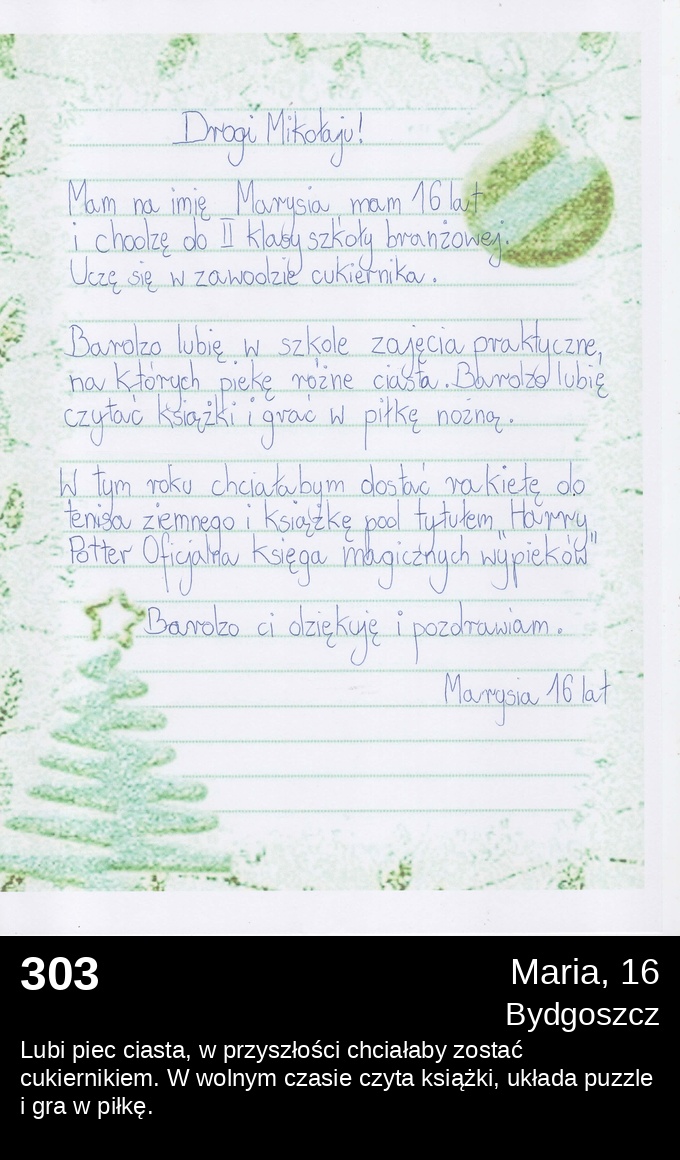 Drogi Mikołaju!
Mam na imię Marysia mam 16 lat
i chodzę do II klasy szkoły branżowej.
Uczę się w zawodzie cukiernika.
Bardzo lubię w szkole zajęcia praktyczne,
na których piekę różne ciasta. Bardzo lubię
czytać książki i grać w piłkę nożną.
W tym roku chciałabym dostać rakietę do
tenisa ziemnego i książkę pod tytułem "Harry
Potter Oficjalna księga magicznych wypieków"
Bardzo ci dziękuję i pozdrawiam.
Marysia 16 lat
303
Maria, 16
Bydgoszcz
Lubi piec ciasta, w przyszłości chciałaby zostać
cukiernikiem. W wolnym czasie czyta książki, układa puzzle
i gra w piłkę.